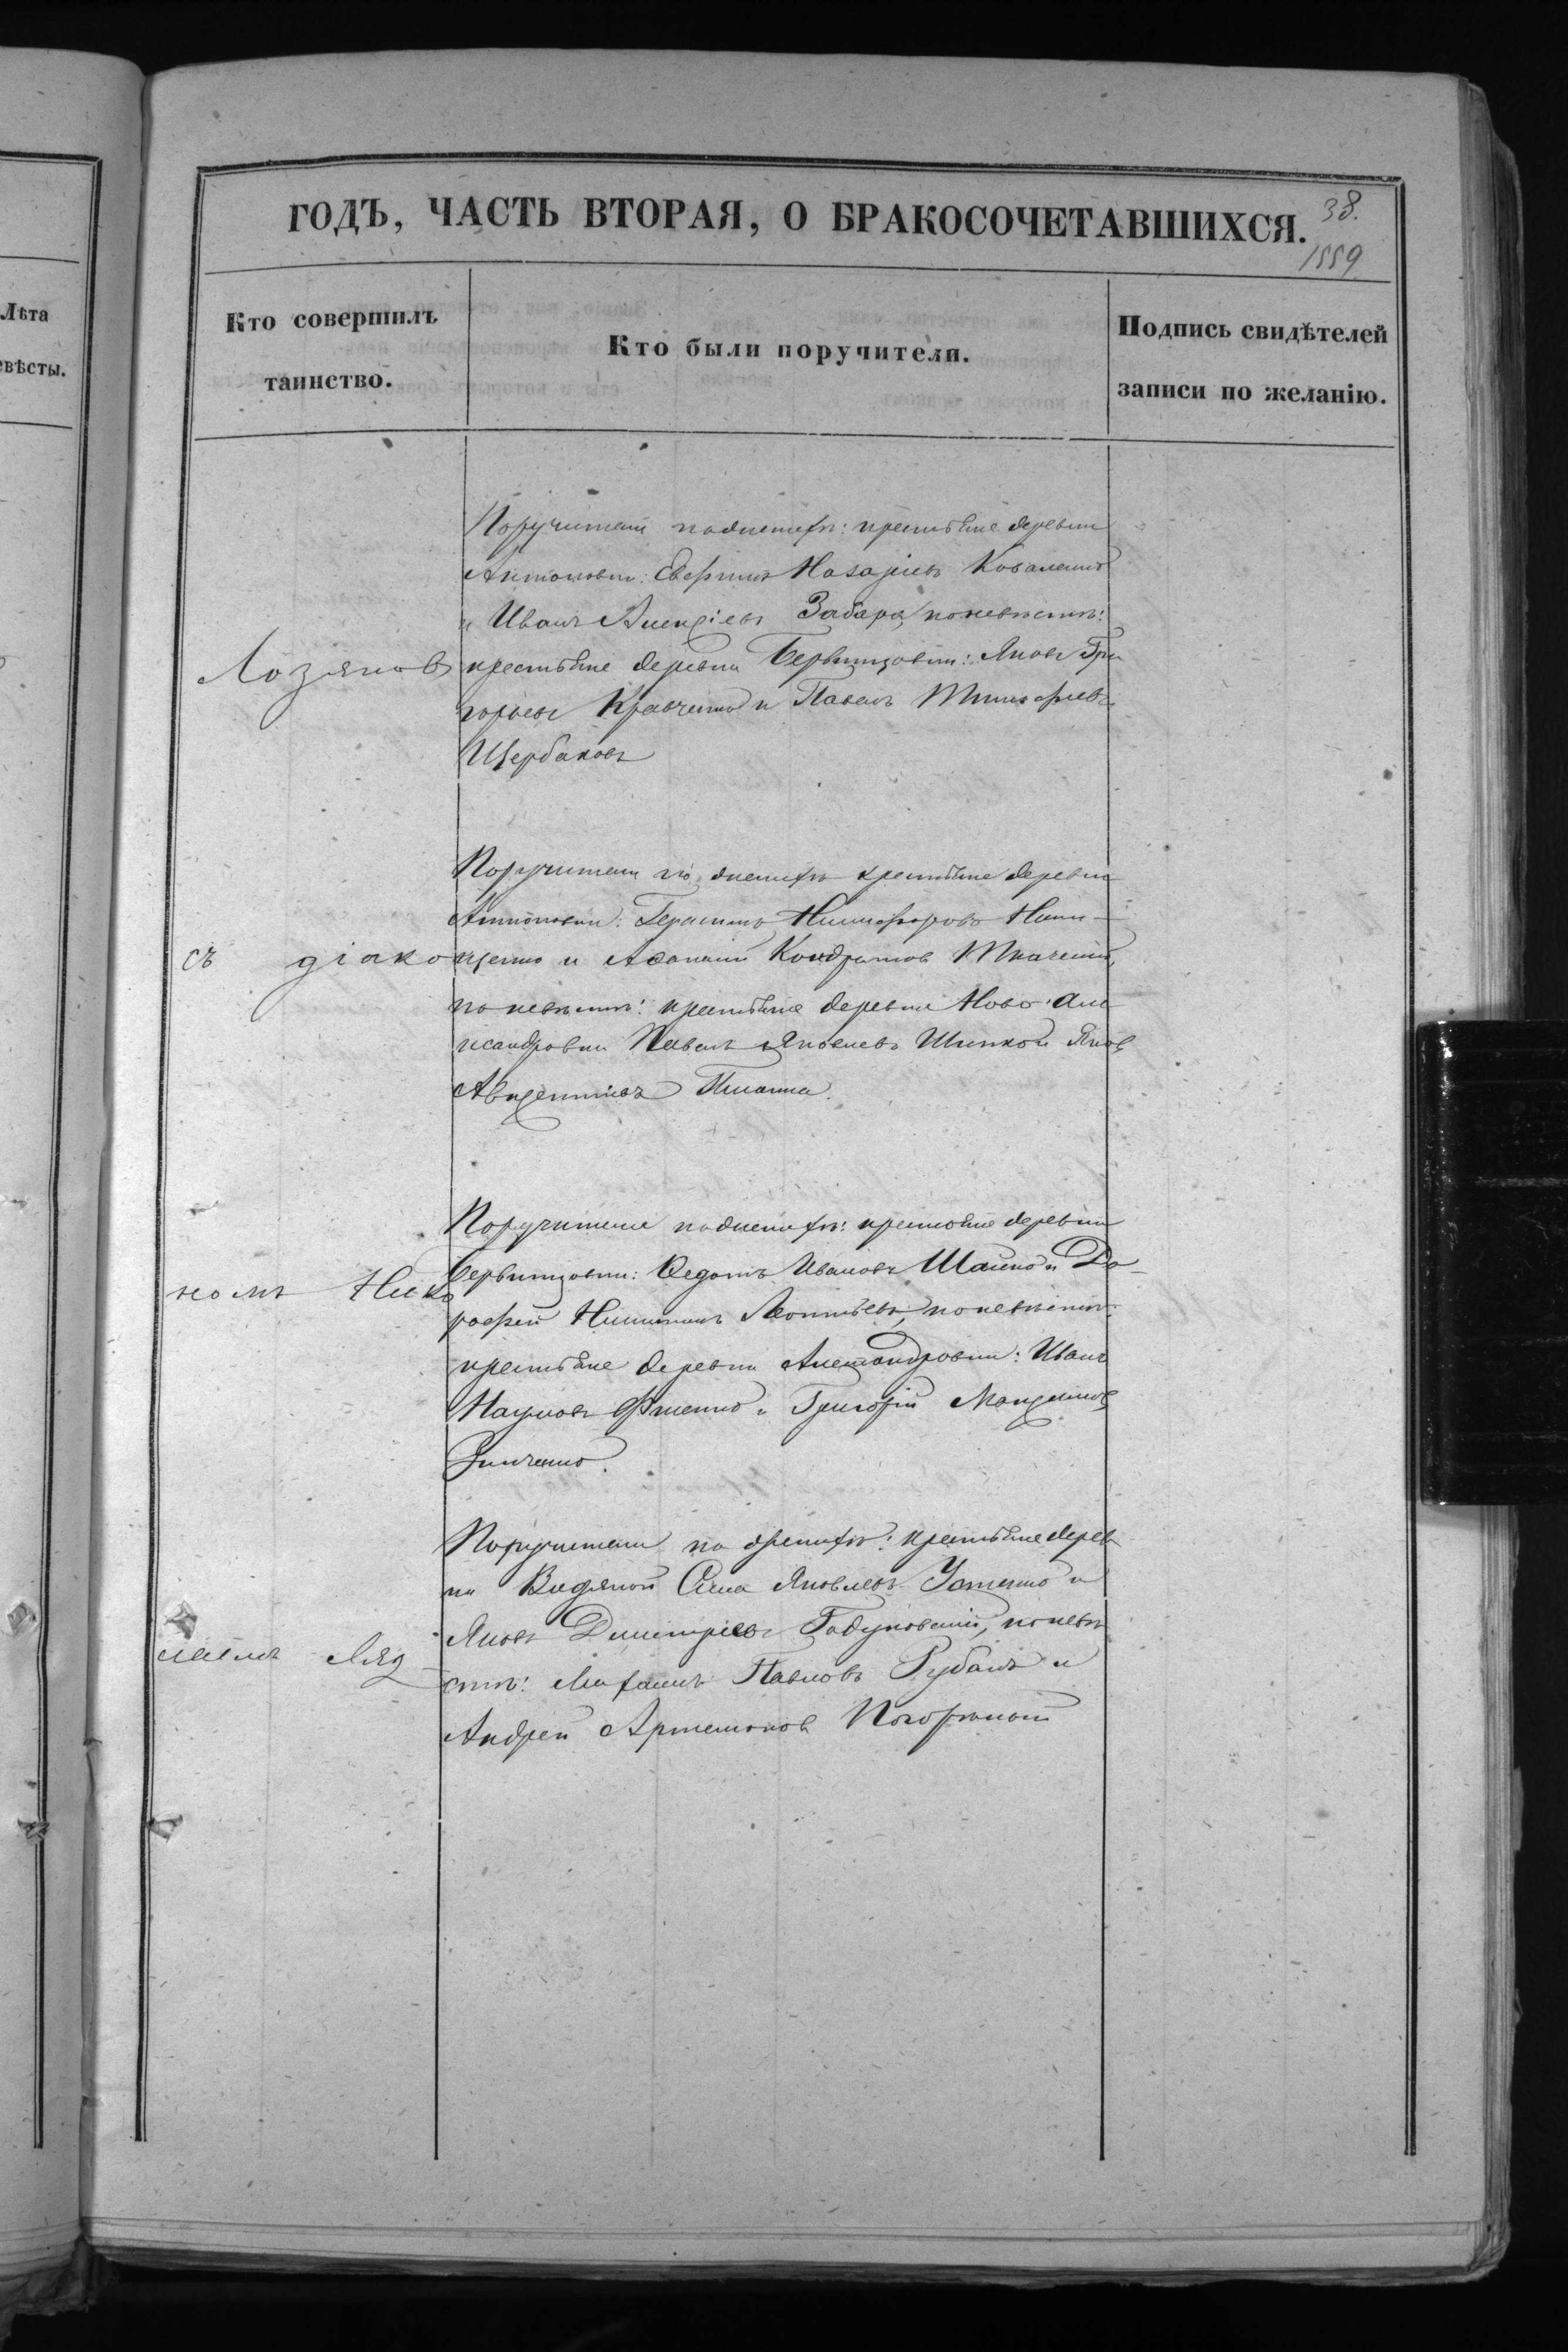 ГОДЪ, ЧАСТЬ ВТОРАЯ, О БРАКОСОЧЕТАВШИХСЯ.
38.
1559
Лѣта
евѣсты.
Кто совершилъ
таинство.
Кто были поручители.
Подпись свидѣтелей
записи по желанію.
Лозяновъ
съ діако
номъ Нико
лаемъ Ляд
Поручители по женихѣ: крестьяне деревни
Антоновки: Евфимъ Назаріевъ Коваленко
и Иванъ Алексіевъ Забара, по невѣстѣ:
крестьяне деревни Бервицовки: Яковъ Гри
горьевъ Кравченко и Павелъ Тимофіевъ
Щербаковъ
Поручители по женихѣ крестьяне деревни
Антоновки: Герасимъ Никифоровъ Ники-
щенко и Аѳанасій Кондратовъ Ткаченко,
по невѣстѣ: крестьяне деревни Ново-Але
ксандровки Павелъ Яковлевъ Шинко и Яковъ
Авксентіевъ
Поручители по женихѣ: крестьяне деревни
Бервицовки: Ѳедотъ Ивановъ Шайко и До-
рофей Никитинъ Леонтьевъ, по невѣстѣ:
крестьяне деревни Александровки: Иванъ
Наумовъ и Григорій Максимовъ
Зинченко.
Поручители по женихѣ: крестьяне дерев
ни Водяной Сила Яковлевъ Усатенко и
Яковъ Димитріевъ Годуновскій, по невѣ
стѣ: Михаилъ Павловъ Рубанъ и
Андрей Артемоновъ Погорѣлый